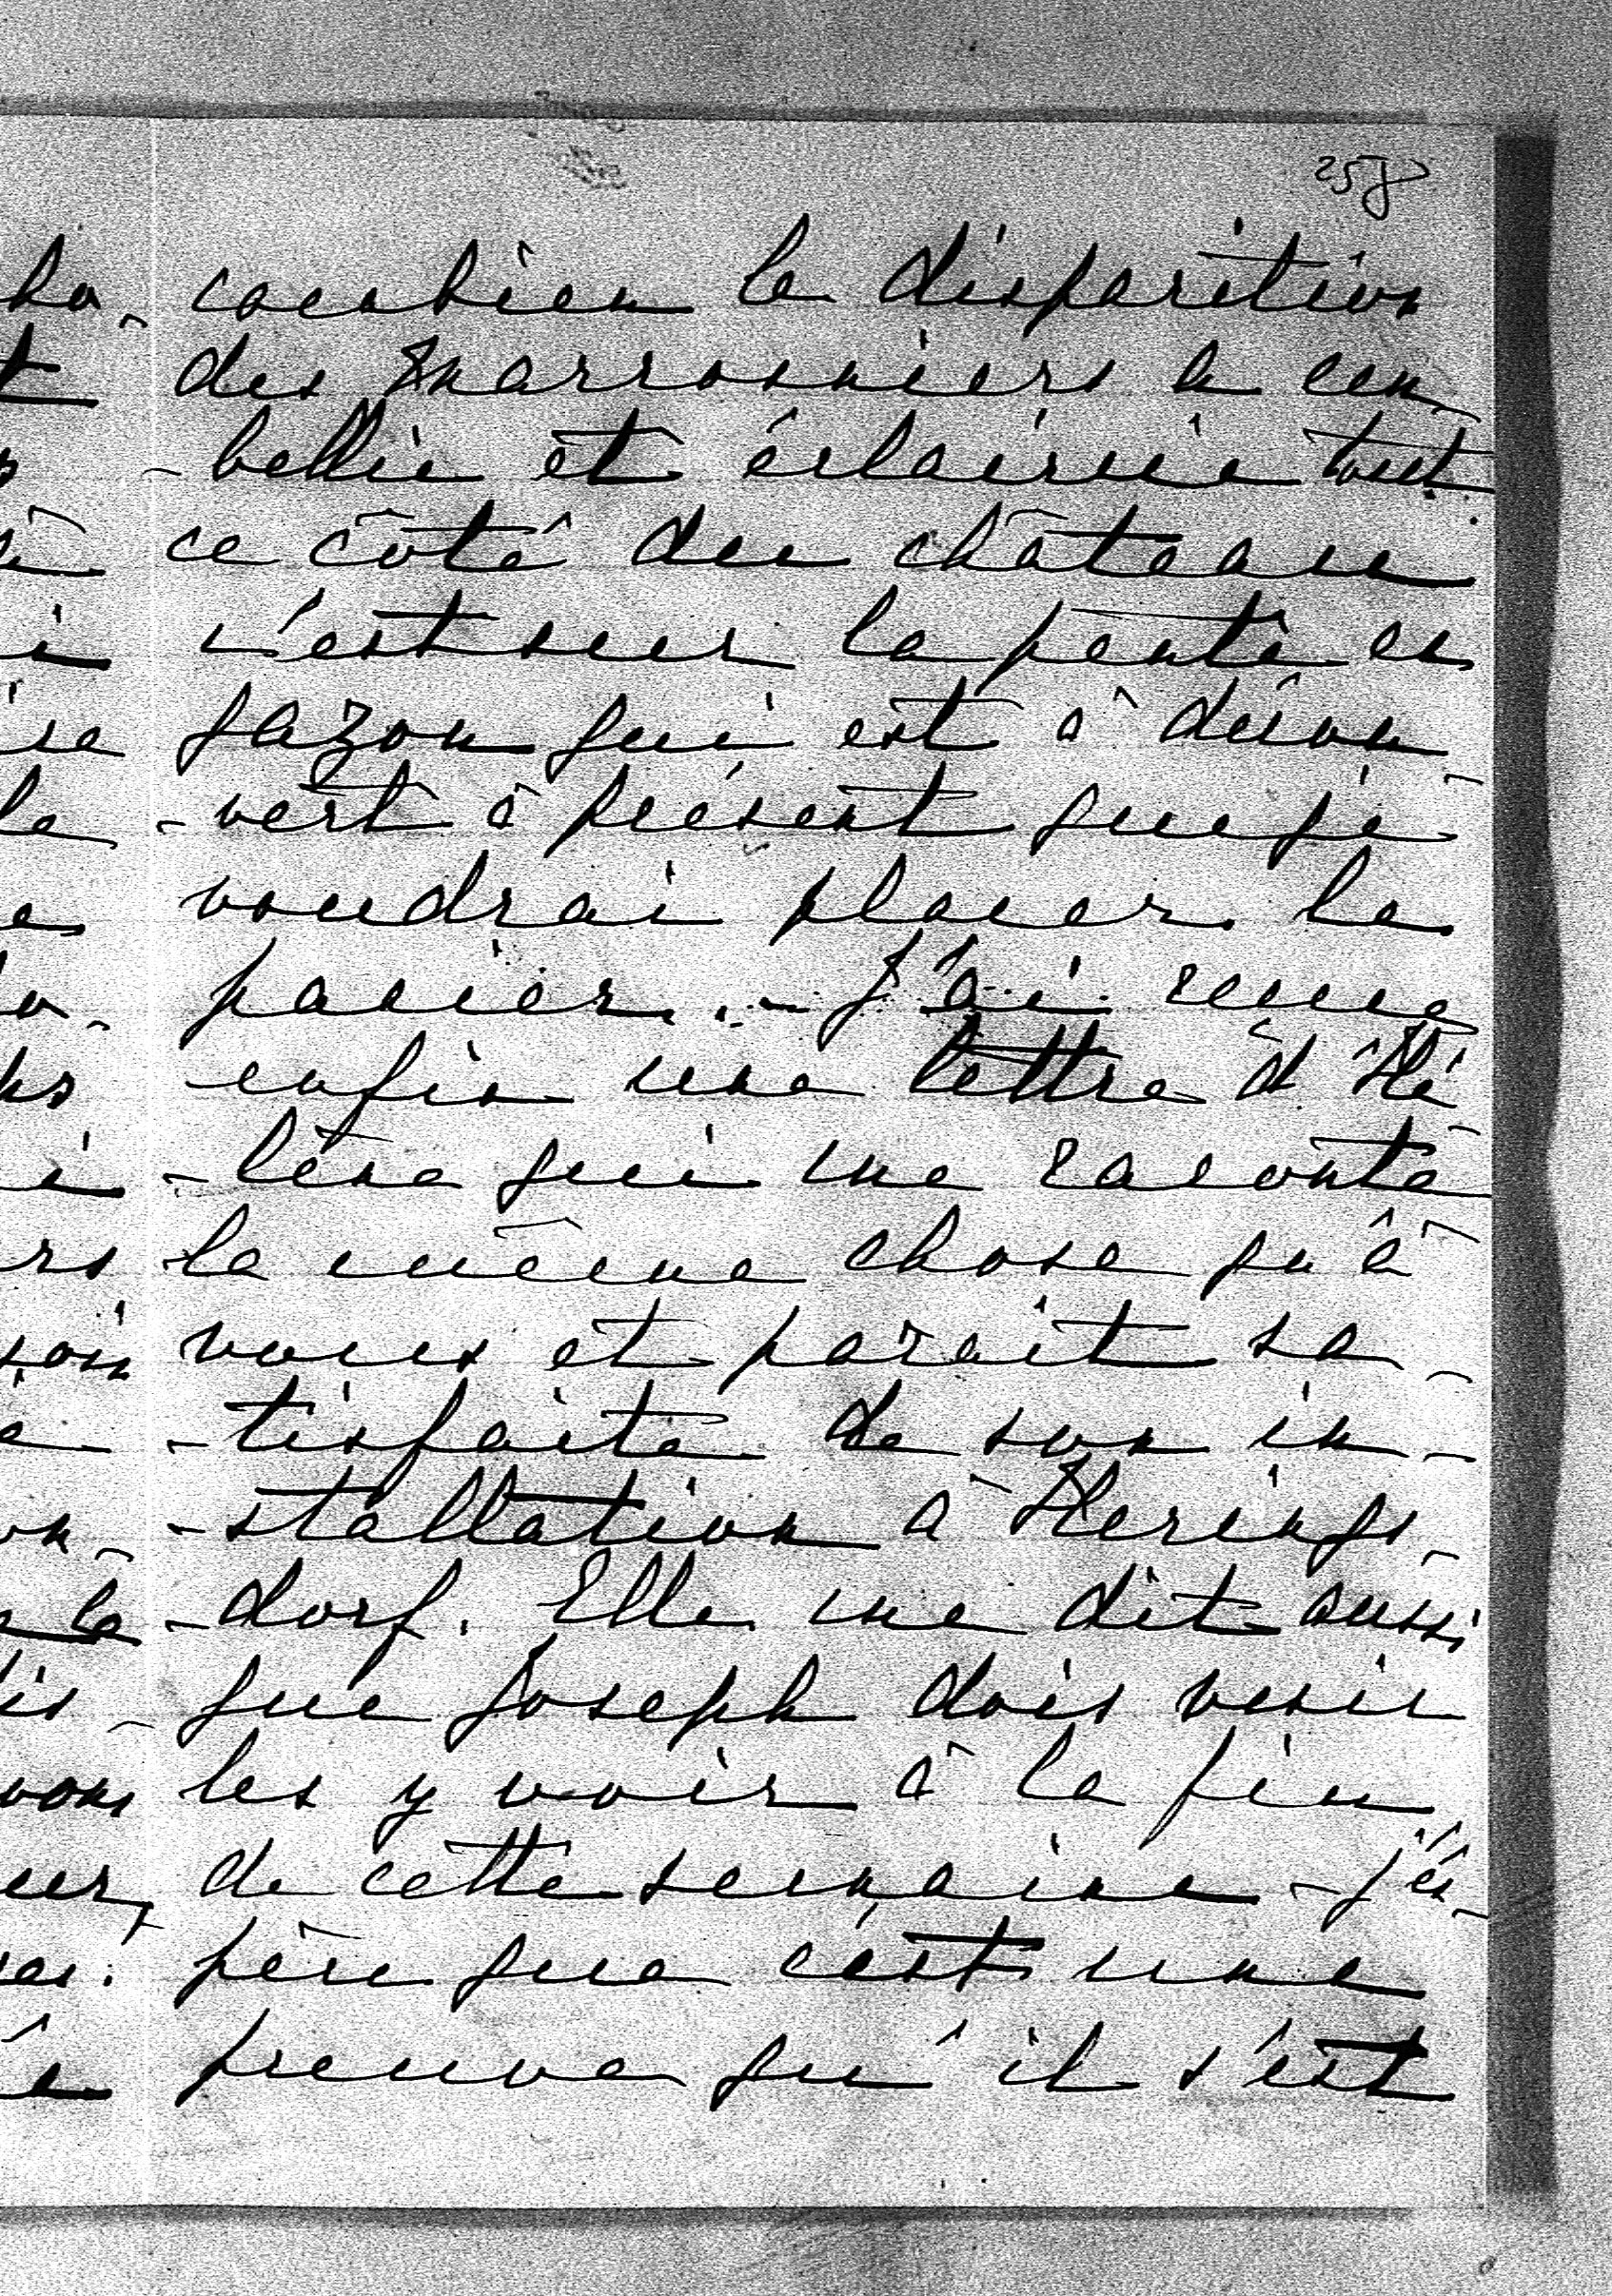 258
combien la disparition
des marronniers a em-
-bellie et éclaircie tout
ce côté du château
c'est sur la pente en
gazon qui est à décou-
-vert à présent que je
voudrai placer le
panier. - J'ai reçue
enfin une lettre d'Hé-
-lène qui me raconte
la même chose qu'à
vous et parait sa-
-tisfaite de son in-
-stallation à Herings-
-dorf. Elle me dit aussi
que Joseph dois venir
les y voir à la fin
de cette semaine - j'és-
père que c'est une
preuve qu'il s'est